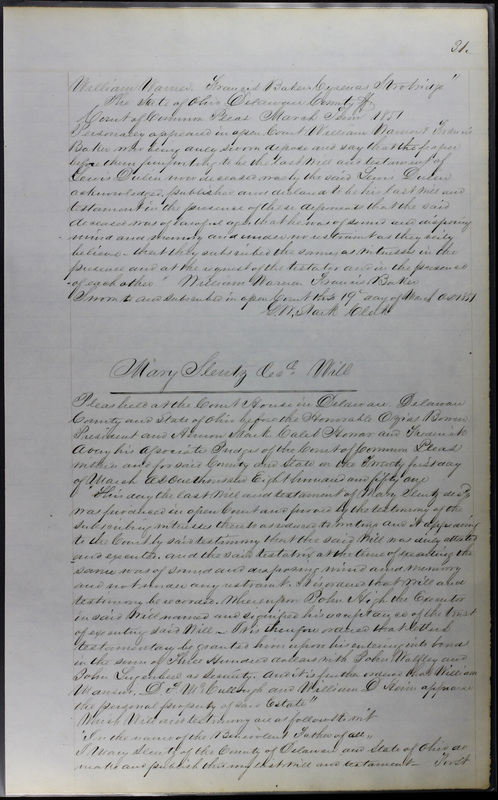 31.
William Warner Francis Baker Cyrenas Strobridge"
The State of Ohio Delaware County SS
Court of Common Pleas March Term 1851
Personally appeared in open Court William Warner & Francis
Baker who being duly sworn depose and say that the paper
before them purporting to be the last Will and testament of
Lewis now deceased was by the said Lewis
acknowledged, published and declared to be his last Will and
testament in the presence of these deponents that the said
deceased was of lawful age that he was of sound and disposing
mind and memory and under no restraint as they verily
believe that they subscribed the same as witnesses in the
presence and at the request of the testator and in the presence
of each other" William Warner Francis Baker
Sworn to and subscribed in open Court this 19th day of March AD 1851
Clerk
Mary Slentz Decd. Will
Pleas held at the Court House in Delaware, Delaware
County and State of Ohio before the Honorable Ozias Bowen
President and Caleb Honor and Frederick
Avery his Associate Judges of the Court of Common Pleas
within and for said County and State on the Twenty first day
of March AD One thousand Eight hundred and fifty one
"This day the last Will and testament of Mary Slentz decd
was produced in open Court and proved by the testimony of the
subscribing witnesses thereto as reduced to writing and it appearing
to the Court by said testimony that the said Will was duly attested
and executed, and the said testatrix at the time of executing the
same was of sound and disposing mind and memory
and not under any restraint. It is ordered that Will and
testimony be recorded. Whereupon John High the Executor
in said Will named and signified his acceptance of the trust
of executing said Will. It is therefore ordered that letters
testamentary be granted him upon his entering into bond
in the sum of Three Hundred dollars with John and
John as security and it is further ordered that William
Warner, D. T. McCullough and William D. appraise
the personal property of said Estate"
Which Will and testimony are as follows to wit
"In the name of the Benevolent Father of all"
I Mary Slentz of the County of Delaware and State of Ohio do
make and publish this my last Will and testament First